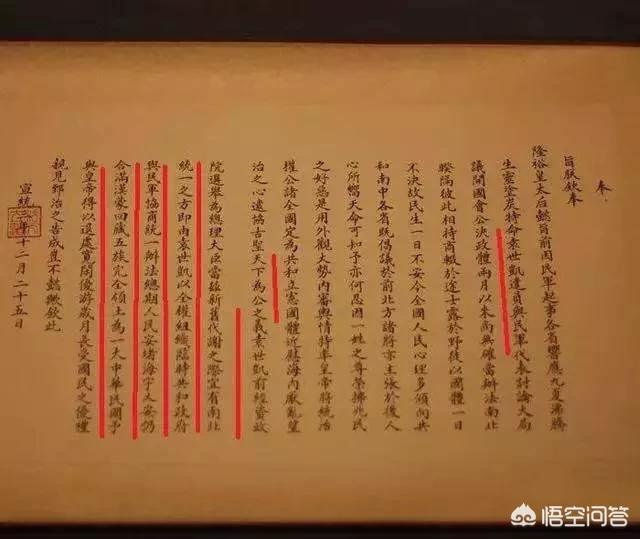 奉
旨朕欽奉
隆裕皇太后懿旨前因民軍起事各省響應九夏沸騰
生靈塗炭特命袁世凱遣員與民軍代表討論大局
議開國會公決政體兩月以來尚無確當辦法南北
暌隔彼此相持商輟於途士露於野徒以國體一日
不決故民生一日不安今全國人民心理多傾向共
和南中各省既倡議於前北方諸將亦主張於後人
心所嚮天命可知予亦何忍因一姓之尊榮拂兆民
之好惡是用外觀大勢內審輿情特率皇帝將統治
權公諸全國定為共和立憲國體近慰海內厭亂望
治之心遠協古聖天下為公之義袁世凱前經資政
院選舉為總理大臣當茲新舊代謝之際宜有南北
統一之方即由袁世凱以全權組織臨時共和政府
與民軍協商統一辦法總期人民安堵海宇乂安仍
合滿漢蒙回藏五族完全領土為一大中華民國予
與皇帝得以退處寬閒優游歲月長受國民之優禮
親見郅治之告成豈不懿歟欽此
宣統三年十二月二十五日
悟空问答